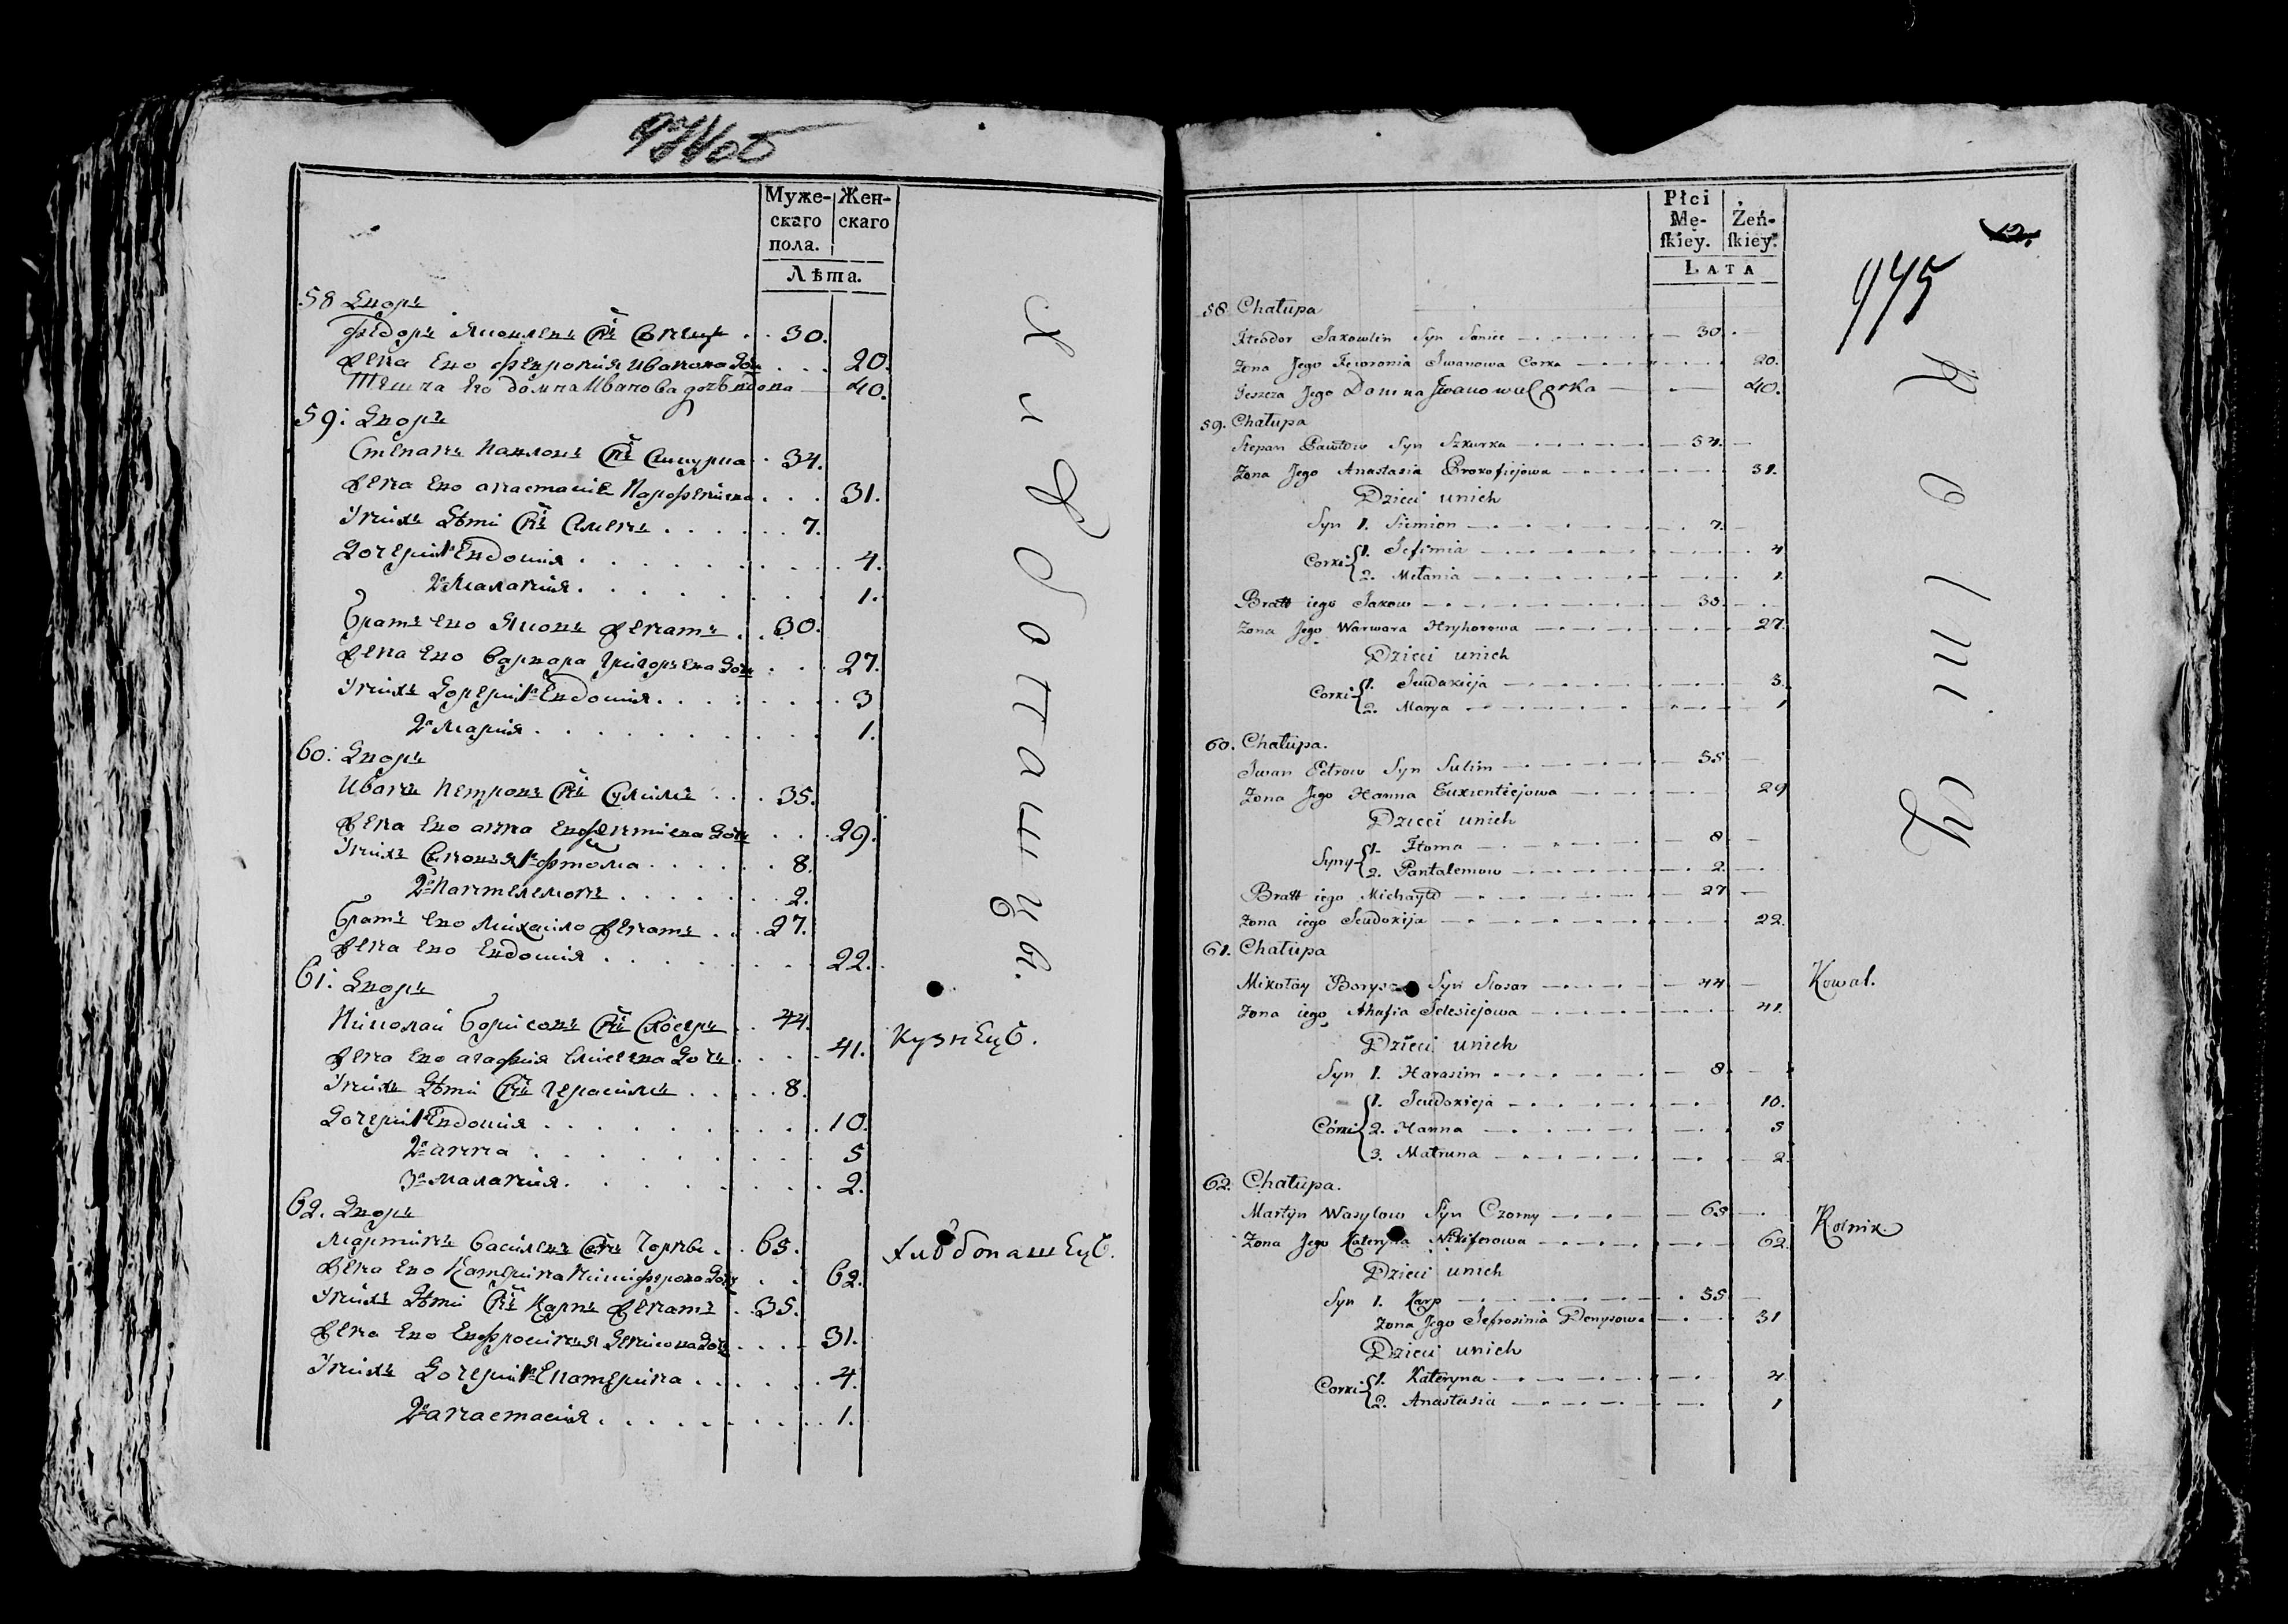 Муже-
скаго
пола.
Жен-
скаго
Лѣта.
58 Дворъ
Федоръ Яковлевъ Снъ . . 30.
Жена Ево Феврония Иванова дочь . . . 20.
Теща Его домна Иванова 40.
59: Дворъ
Степанъ Павловъ Снъ Шкурка . . 34.
Жена Ево анастасия . . . 31.
У них Дѣти Снъ Семенъ . . . . . . 7.
Дочери 1я Евдокия . . . . . . . . . 4.
2я Малания . . . . . . . 1.
Братъ Ево Яковъ Женатъ . . 30.
Жена Ево Варвара Григорьева дочь . . . 27.
У них Дочери 1я Евдокия . . . . . . . . 3
2я Мария . . . . . . . . . 1.
60: Дворъ
Иванъ Петровъ Снъ Сулимъ . . . 35.
Жена Ево анна дочь . . . 29.
У них Сыновья 1й Фтома . . . . . . 8.
2й Пантелемонъ . . . . . . 2.
Братъ Ево Михайло Женатъ . . . 27.
Жена Ево Евдокия . . . . . . . . 22.
61: Дворъ
Николай Борисовъ Снъ Слюсаръ . . 44.
Жена Ево агафия дочь . . . . 41.
Кузнецъ.
У них Дѣти Снъ Герасимъ . . . . . 8.
Дочери 1я Евдокия . . . . . . . . . . 10.
2я анна . . . . . . . . . 5
3я Малания . . . . . . . . 2.
62. Дворъ
Мартинъ Василевъ Снъ Чорный . . 65.
Жена Ево Катерина Никифорова дочь . . 62.
Хлѣбопашецъ.
У них Дѣти Снъ Карпъ Женатъ . . 35.
Жена Ево Евфросиния Денисова дочь . . . . 31.
У них Дочери 1я Екатерина . . . . . . 4.
2я анастасия . . . . . . . . . 1.
Хлѣбопашцы.
Płci
Mę-
ſkiey.
Żeń-
ſkiey.
LATA
12.
475
58. Chałupa
Fteodor Jakowlew Syn 30.
Zona Jego Fewronia Iwanowa Corka 20.
Teszcza Jego Domna Iwanowa Corka 40.
59. Chałupa
Stepan Pawłow Syn Szkurka 34.
Zona Jego Anastasia Prokofiejowa 31.
Dzieci unich
Syn 1. Siemion 7.
Corki 1. Jefimia 4
2. Mełania 1.
Bratt iego Jakow 30.
Zona Jego Warwara Hryhorowa 27.
Dzieci unich
Corki 1. Jeudokieja 3.
2. Marya 1
60. Chałupa.
Iwan Petrow Syn Sulim 35
Zona Jego Hanna 29
Dzieci unich
Syny 1. Ftoma 8
2. Pantalemow 2.
Bratt iego Michayło 27
Zona iego Jeudokija 22.
61. Chałupa
Mikołay Syn Slosar 44
Kowal.
Zona iego Ahafia Jelesiejowa 41.
Dzieci unich
Syn 1. Harasim 8.
1. Jeudokieja 10.
Córki 2. Hanna 5
3. Matruna 2.
62. Chałupa.
Martyn Wasylow Syn Czorny 65
Rolnik
Zona Jego Kateryna Nikiforowa 62.
Dzieci unich
Syn 1. Karp 35
Zona Jego Jefrosinia Denysowa 31
Dzieci unich
Corki 1. Kateryna 4
2. Anastasia 1
Rolnicy